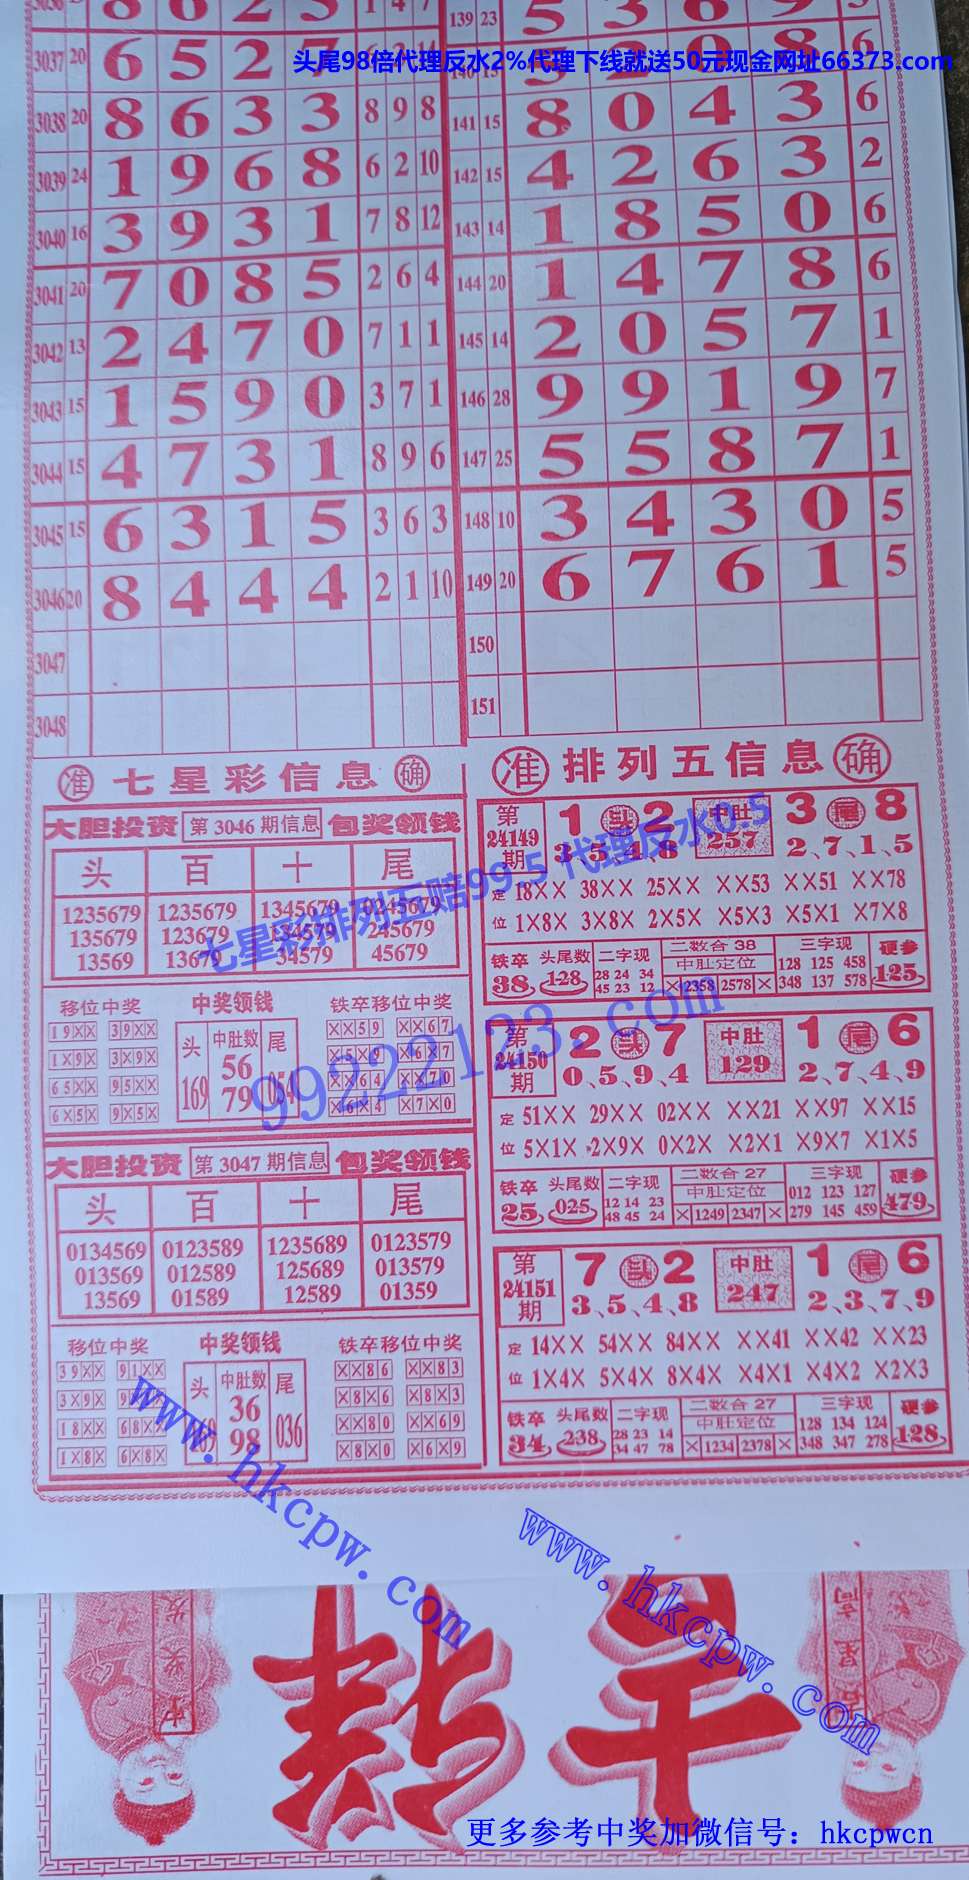 头尾98倍代理反水2%代理下线就送50元现金网址66373.com
139 23 5 3 6 9
3037 20 6 5 2 7
3038 20 8 6 3 3 8 9 8
141 15 8 0 4 3 6
3039 24 1 9 6 8 6 2 10
142 15 4 2 6 3 2
3040 16 3 9 3 1 7 8 12
143 14 1 8 5 0 6
3041 20 7 0 8 5 2 6 4
144 20 1 4 7 8 6
3042 13 2 4 7 0 7 1 1
145 14 2 0 5 7 1
3043 15 1 5 9 0 3 7 1
146 28 9 9 1 9 7
3044 15 4 7 3 1 8 9 6
147 25 5 5 8 7 1
3045 15 6 3 1 5 3 6 3
148 10 3 4 3 0 5
3046 20 8 4 4 4 2 1 10
149 20 6 7 6 1 5
3047
150
3048
151
准 七星彩信息 确
大胆投资 第3046期信息 包奖领钱
头 百 十 尾
1235679 1235679 1345679 0245679
135679 123679 134579 245679
13569 13679 34579 45679
移位中奖 中奖领钱 铁卒移位中奖
19XX 39XX
1X9X 3X9X
65XX 95XX
6X5X 9X5X
头 中肚数 尾
169 56 054
79
XX59 XX67
X5X9 X6X7
XX64 XX70
X6X4 X7X0
大胆投资 第3047期信息 包奖领钱
头 百 十 尾
0134569 0123589 1235689 0123579
013569 012589 125689 013579
13569 01589 12589 01359
移位中奖 中奖领钱 铁卒移位中奖
39XX 91XX
3X9X
18XX 68XX
1X8X 6X8X
头 中肚数 尾
36 036
98
XX86 XX83
X8X6 X8X3
XX80 XX69
X8X0 X6X9
准 排列五信息 确
第24149期 1 头 2 中肚 257 3 尾 8
3、5、4、8 2、7、1、5
定 18XX 38XX 25XX XX53 XX51 XX78
位 1X8X 3X8X 2X5X X5X3 X5X1 X7X8
铁卒 头尾数 二字现 二数合38 三字现 硬参
38 128 28 24 34 中肚定位 128 125 458 125
45 23 12 X 2358 2578 X 348 137 578
第24150期 2 头 7 中肚 129 1 尾 6
0、5、9、4 2、7、4、9
定 51XX 29XX 02XX XX21 XX97 XX15
位 5X1X 2X9X 0X2X X2X1 X9X7 X1X5
铁卒 头尾数 二字现 二数合27 三字现 硬参
25 025 12 14 23 中肚定位 012 123 127 479
48 45 24 X 1249 2347 X 279 145 459
第24151期 7 头 2 中肚 247 1 尾 6
3、5、4、8 2、3、7、9
定 14XX 54XX 84XX XX41 XX42 XX23
位 1X4X 5X4X 8X4X X4X1 X4X2 X2X3
铁卒 头尾数 二字现 二数合27 三字现 硬参
34 238 28 23 14 中肚定位 128 134 124 128
34 47 78 X 1234 2378 X 348 347 278
七星彩排列五赔99.5 代理反水0.5
99222123.com
www.hkcpw.com
www.hkcpw.com
更多参考中奖加微信号：hkcpwcn